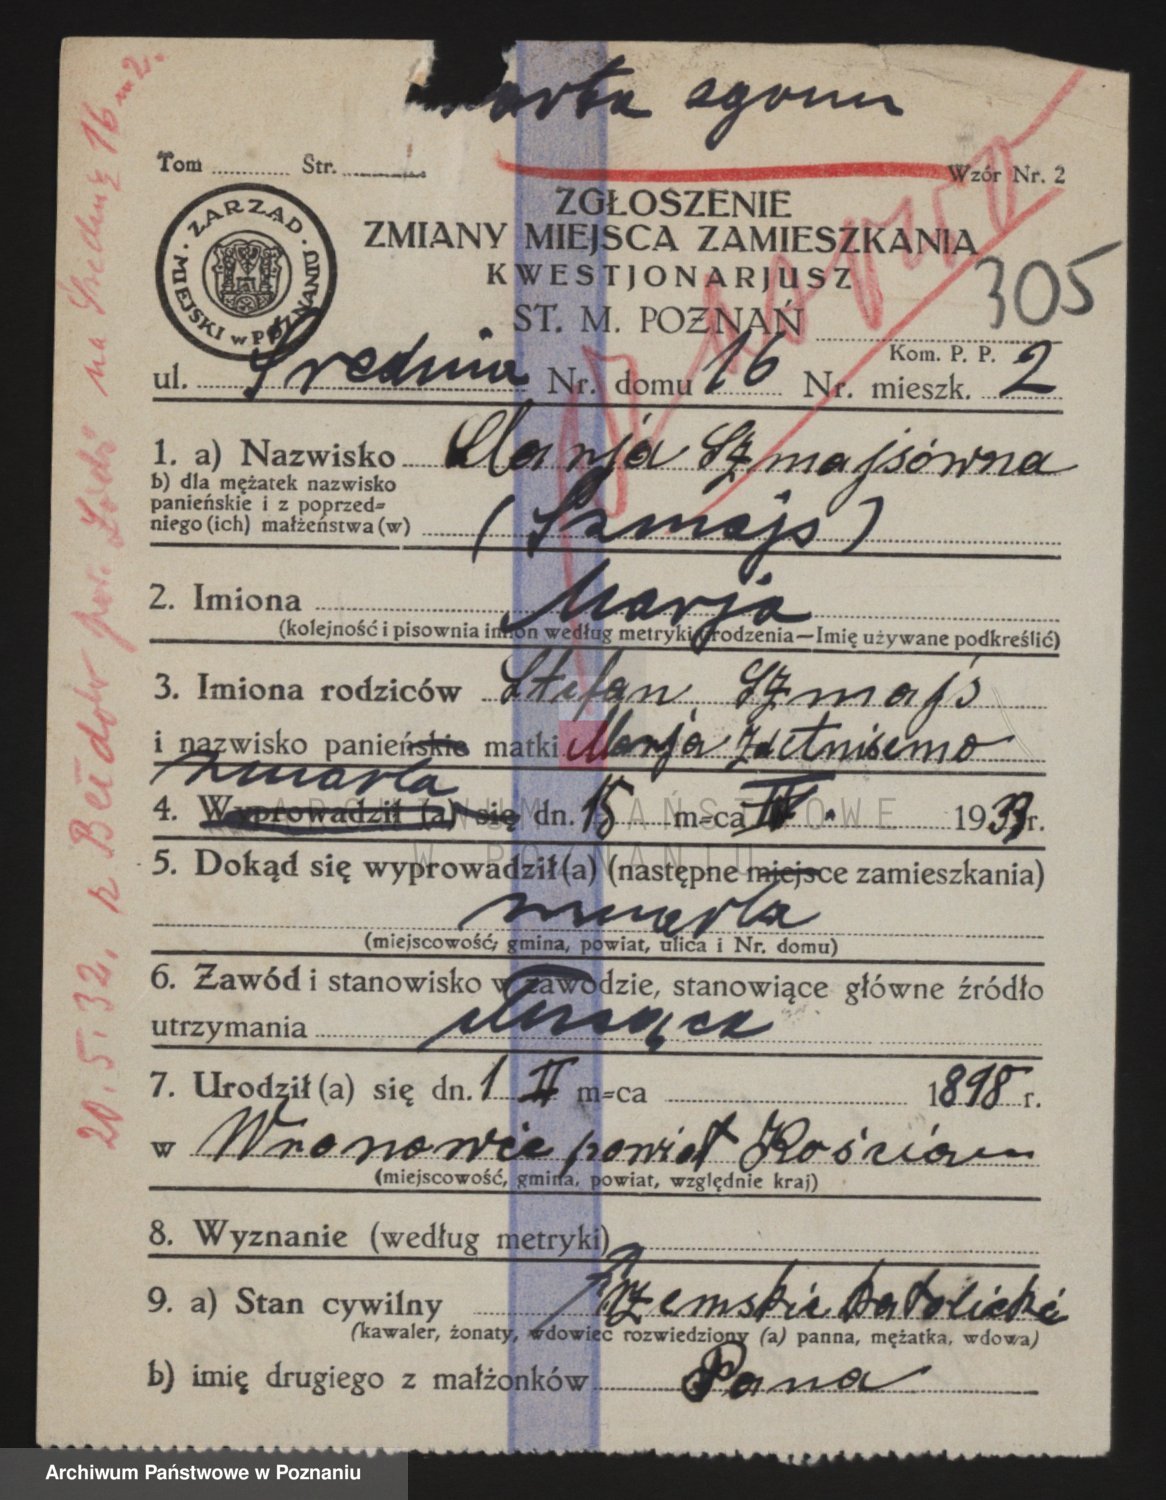 karta zgonu
Tom Str. Wzór Nr. 2
ZARZĄD MIEJSKI w POZNANIU
ZGŁOSZENIE
ZMIANY MIEJSCA ZAMIESZKANIA
KWESTJONARJUSZ
305
ST. M. POZNAŃ
Kom. P. P.
ul. Średnia Nr. domu 16 Nr. mieszk. 2
1. a) Nazwisko Marja Szmajsówna
b) dla mężatek nazwisko
panieńskie i z poprzed=
niego (ich) małżeństwa (w) (Szmajs)
2. Imiona Marja
(kolejność i pisownia imion według metryki urodzenia—Imię używane podkreślić)
3. Imiona rodziców Stefan Szmajs
i nazwisko panieńskie matki Marja
zmarla
4. Wyprowadził (a) się dn. 15 m=ca IV 1933 r.
5. Dokąd się wyprowadził(a) (następne miejsce zamieszkania)
zmarla
(miejscowość, gmina, powiat, ulica i Nr. domu)
6. Zawód i stanowisko w zawodzie, stanowiące główne źródło
utrzymania służąca
7. Urodził(a) się dn. 1 II m=ca 1898 r.
w Wronowie powiat Kościan
(miejscowość, gmina, powiat, względnie kraj)
8. Wyznanie (według metryki)
9. a) Stan cywilny Rzemskie katolickie
(kawaler, żonaty, wdowiec rozwiedziony (a) panna, mężatka, wdowa)
b) imię drugiego z małżonków Pana
20. 5. 32. z na Średnią 16 m 2.
ARCHIWUM PAŃSTWOWE
W POZNANIU
Archiwum Państwowe w Poznaniu